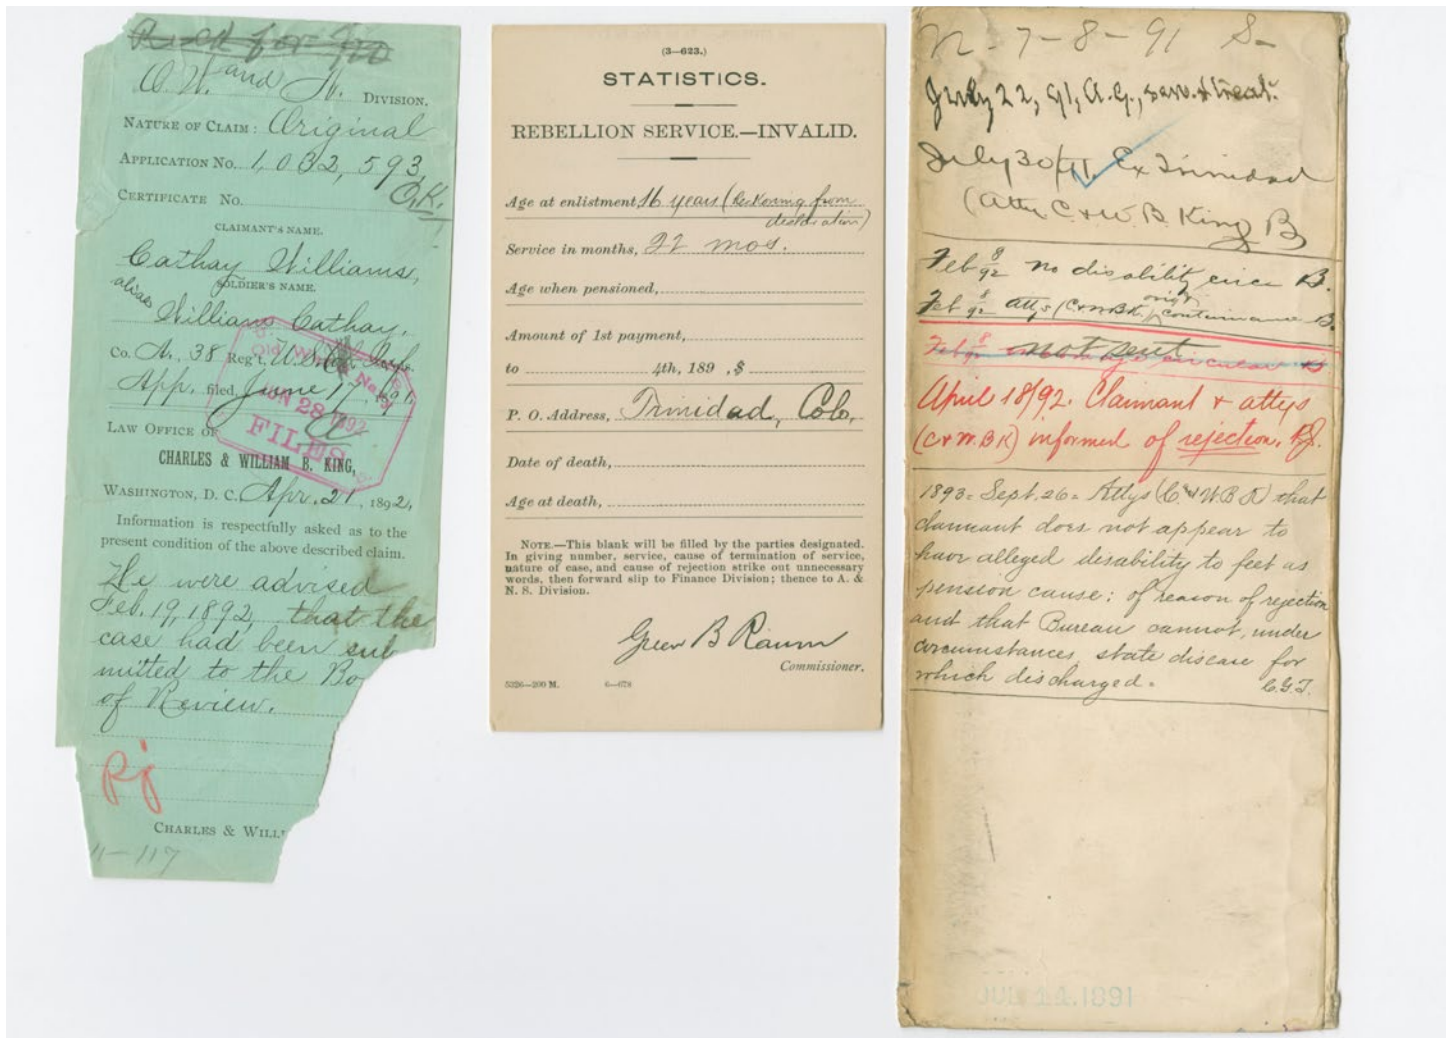 O.W. and N. DIVISION.
NATURE OF CLAIM: Original
APPLICATION NO. 1,032,593,
O.K.
CERTIFICATE NO.
CLAIMANT'S NAME.
Cathay Williams,
SOLDIER'S NAME.
alias
William Cathay,
Co. A., 38 Reg't, U.S. Col. Inf.
App. filed, June 17, 1891,
JUN 28 1892
FILES
LAW OFFICE OF
CHARLES & WILLIAM B. KING,
WASHINGTON, D. C. Apr. 21, 1892,
Information is respectfully asked as to the
present condition of the above described claim.
We were advised
Feb. 19, 1892, that the
case had been sub
mitted to the Bo
of Review.
Rj
CHARLES & WILL
11-117
(3—623.)
STATISTICS.
REBELLION SERVICE.—INVALID.
Age at enlistment, 16 years (Reckoning from
declaration)
Service in months, 22 mos.
Age when pensioned,
Amount of 1st payment,
to 4th, 189 , $
P. O. Address, Trinidad, Colo,
Date of death,
Age at death,
NOTE.—This blank will be filled by the parties designated.
In giving number, service, cause of termination of service,
nature of case, and cause of rejection strike out unnecessary
words, then forward slip to Finance Division; thence to A. &
N. S. Division.
Green B Raum
Commissioner.
5326—200 M. 6—678
N-7-8-91 S-
July 22, 91, A.G., serv. & treat.
July 30/91 Ex Trinidad
(Atty C & W. B. King B
Feb 8/92 no disability since B.
Feb 8/92 Attys (C & W B K.) orig. continuance B.
Feb 8/92 circular B
not sent
April 18/92. Claimant & attys
(C & W. B K) informed of rejection. Rj.
1893 = Sept. 26 = Attys (C. & W B K) that
claimant does not appear to
have alleged disability to feet as
pension cause; of reason of rejection
and that Bureau cannot, under
circumstances, state disease for
which discharged. C.G.T.
JUL 11.1891